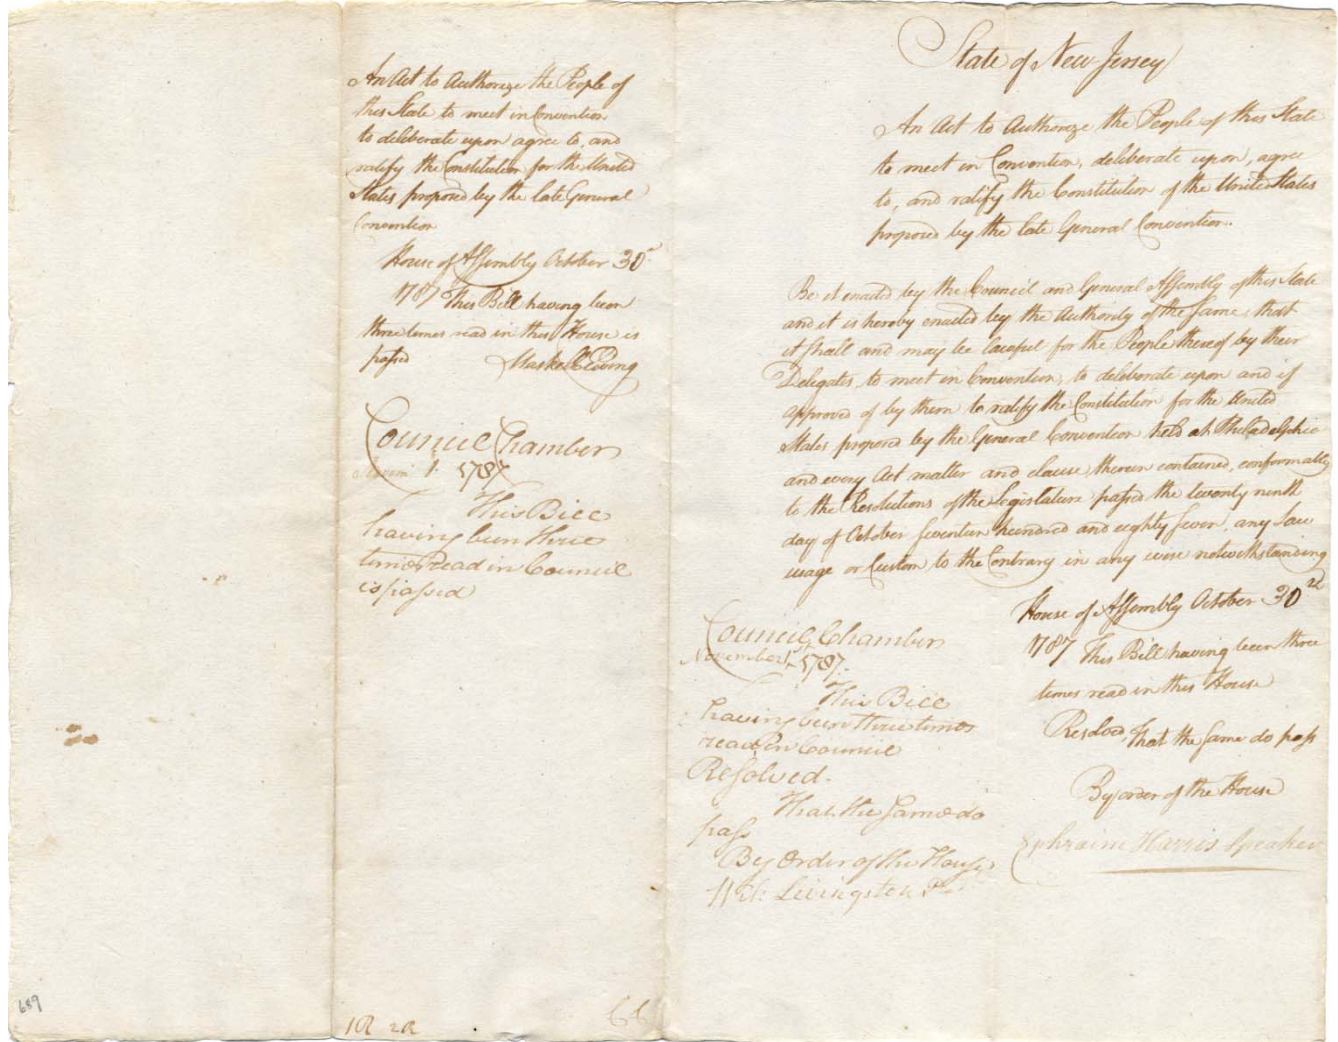 An Act to Authorize the People of
this State to meet in Convention
to deliberate upon agree to, and
ratify the Constitution for the United
States proposed by the late General
Convention
House of Assembly October 30
1787 This Bill having been
three times read in this House is
passed Maskell Ewing
Council Chamber
1. 1787
This Bill
having been three
times read in Council
is passed
1R 2R
66
689
State of New Jersey
An Act to Authorize the People of this State
to meet in Convention, deliberate upon, agree
to, and ratify the Constitution of the United States
proposed by the late General Convention..
Be it enacted by the Council and General Assembly of this State
and it is hereby enacted by the Authority of the same, that
it shall and may be lawful for the People thereof by their
Delegates, to meet in Convention, to deliberate upon and if
approved of by them to ratify the Constitution for the United
States proposed by the General Convention held at Philadelphia
and every Act matter and clause therein contained, conformably
to the Resolutions of the Legislature passed the twenty ninth
day of October seventeen hundred and eighty seven, any Law
usage or Custom to the Contrary in any wise notwithstanding
House of Assembly October 30
1787 This Bill having been three
times read in this House
Resolved, That the same do pass
By order of the House
Ephraim Harris Speaker
Council Chamber
November 1st 1787.
This Bill
having been three times
read in Council
Resolved.
That the same do
pass
By Order of the House
Wil: Livingston Pr.